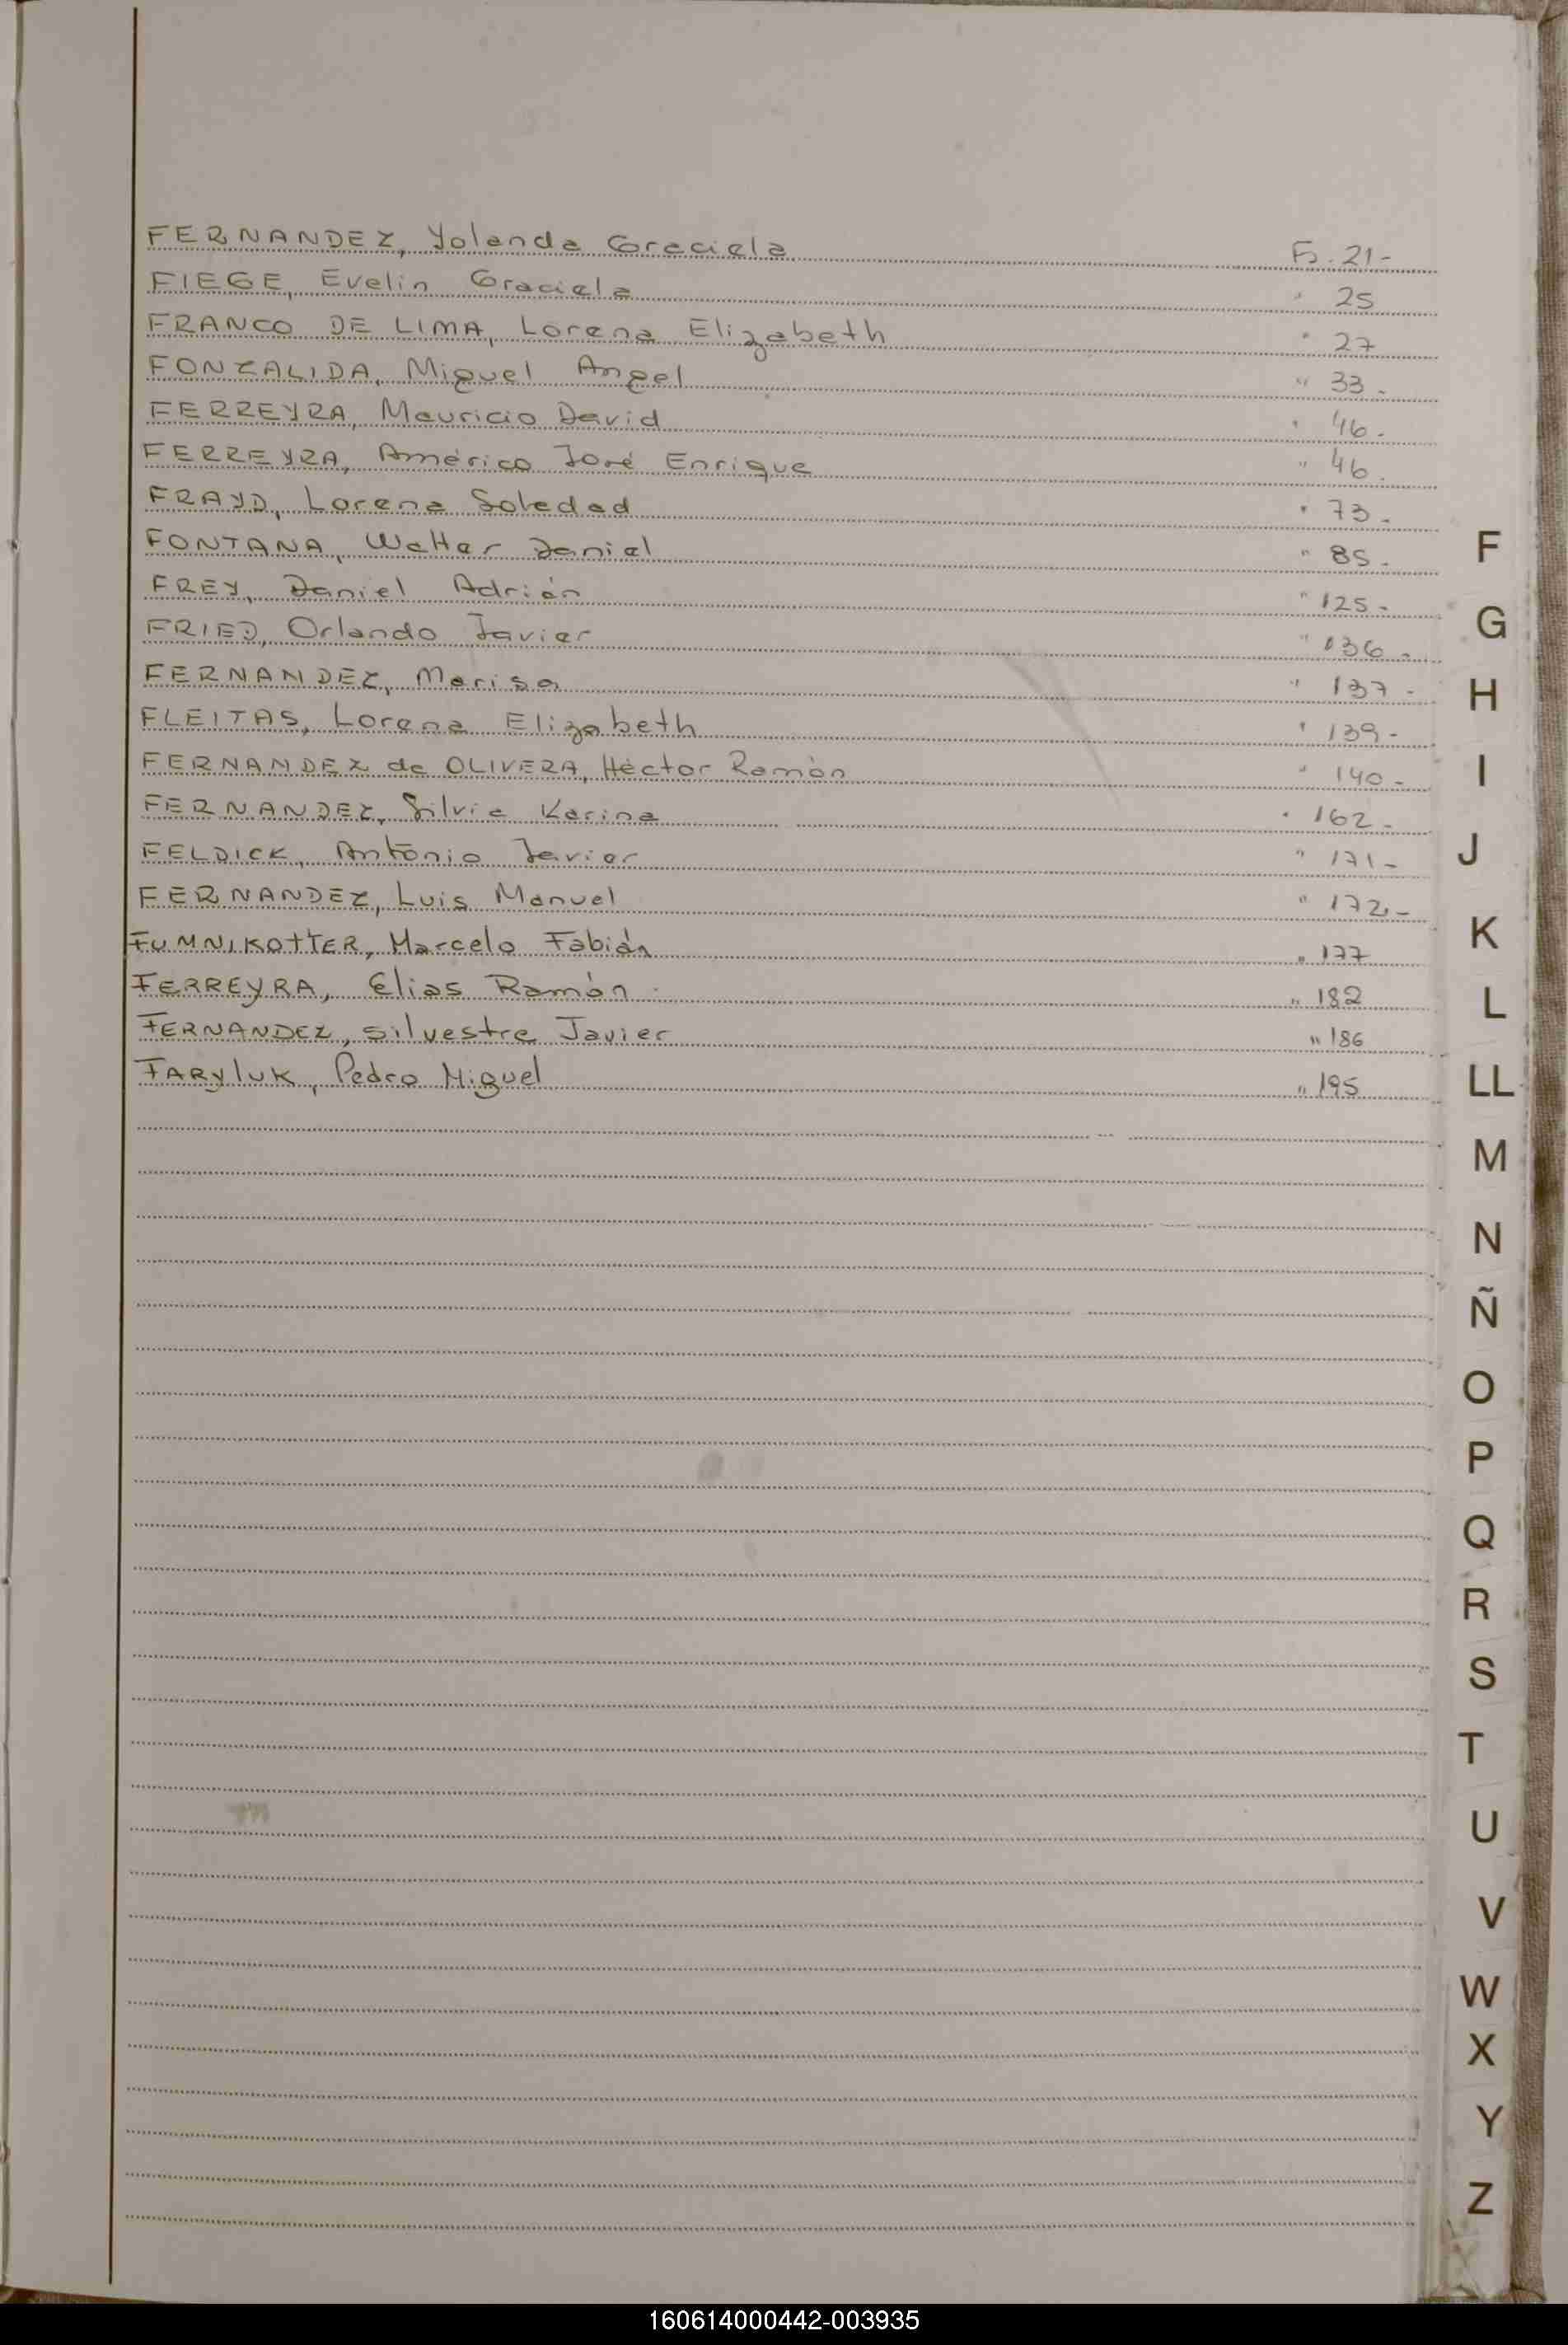 FERNANDEZ, Yolanda Graciela Fs. 21-
FIEGE, Evelin Graciela " 25
FRANCO DE LIMA, Lorena Elizabeth " 27
FONZALIDA, Miguel Angel " 33-
FERREYRA, Mauricio David " 46-
FERREYRA, Américo José Enrique " 46.
FRAYD, Lorena Soledad " 73-
FONTANA, Walter Daniel " 85-
FREY, Daniel Adrián " 125-
FRIED, Orlando Javier " 136-
FERNANDEZ, Marisa " 137-
FLEITAS, Lorena Elizabeth " 139-
FERNANDEZ de OLIVERA, Héctor Ramón " 140-
FERNANDEZ, Silvia Karina " 162-
FELDICK, Antonio Javier " 171-
FERNANDEZ, Luis Manuel " 172-
FUMNIKOTTER, Marcelo Fabián " 177
FERREYRA, Elias Ramón " 182
FERNANDEZ, Silvestre Javier " 186
FARYluK, Pedro Miguel " 195
F
G
H
I
J
K
L
LL
M
N
Ñ
O
P
Q
R
S
T
U
V
W
X
Y
Z
160614000442-003935